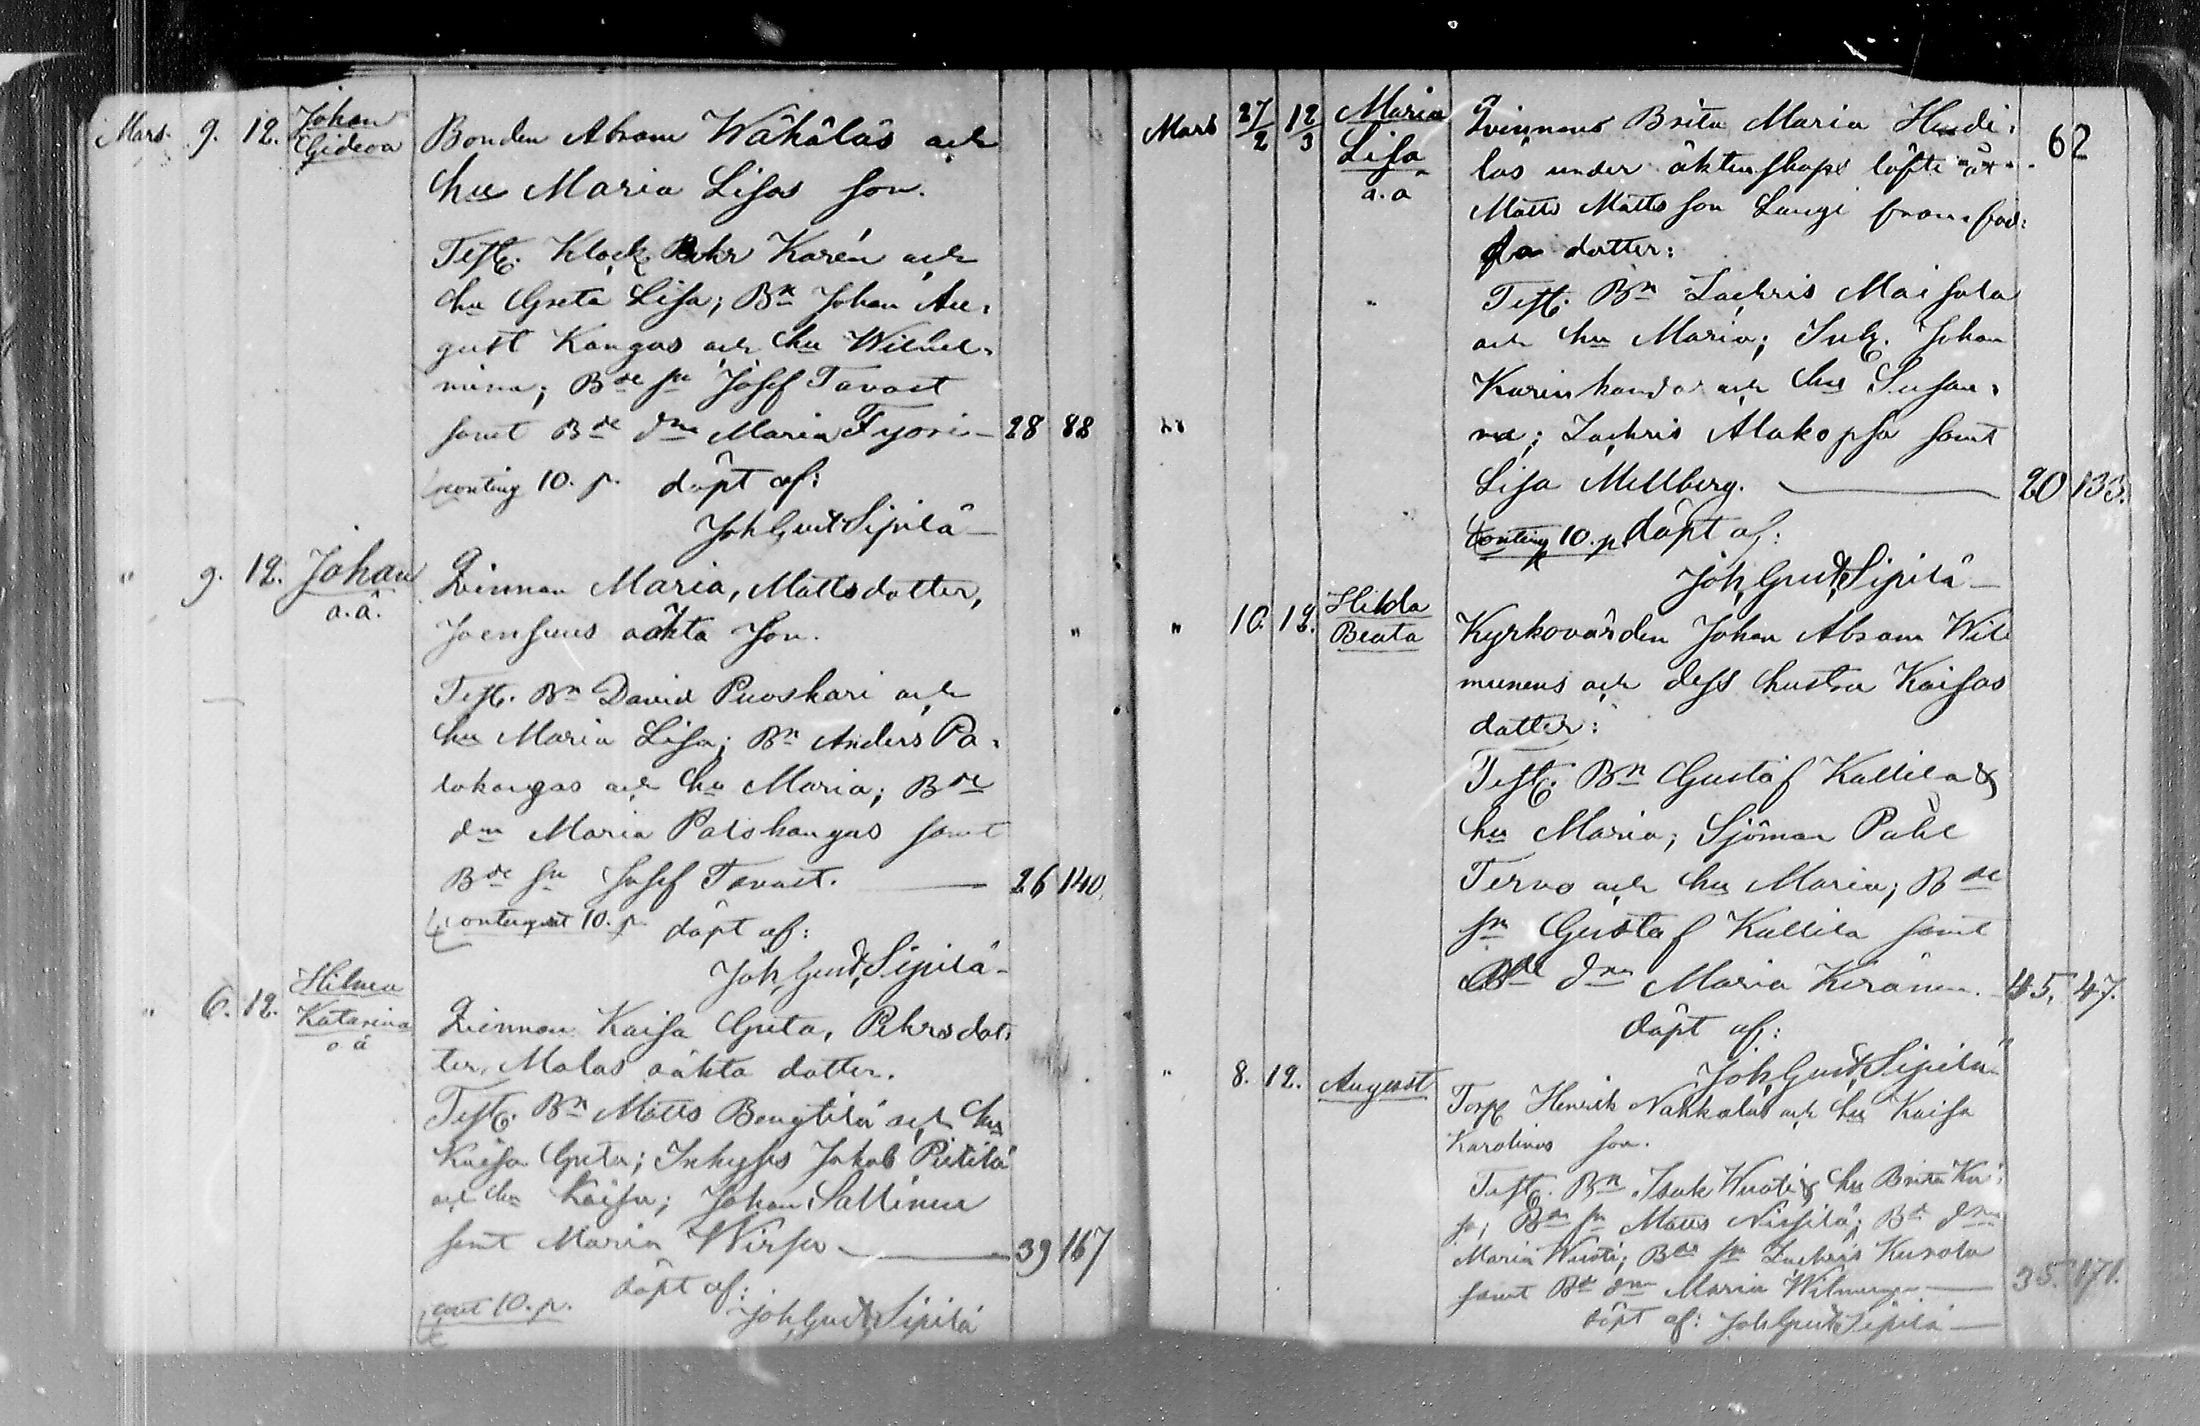 Mars. 9. 12. Johan Gideon Bonden Abram Wähäläs och
hu Maria Lisas son.
Test. Klock. Pehr Karén och
hu Greta Lisa; Bn Johan Au-
gust Kangas och hu Wilhel-
mina; Bde sn Josef Tavast
samt Bde dn Maria Fyori 28 88
conting 10. p. döpt af:
Joh Gust Sipilä
" 9. 12. Johan o.ä. Qvinnan Maria, Mattsdotter,
Joensuus oäkta son.
Test. Bn David Puoskari och
hu Maria Lisa; Bn Anders Pa-
lokangas och hu Maria; Bde
dn Maria Palokangas samt
Bde sn Josef Tavast. 26 140.
10. p. döpt af:
Joh Gust Sipilä
" 6. 12. Hilma Katarina o ä Qvinnan Kaisa Greta, Pehrsdot-
ter, Malas oäkta dotter.
Test. Bn Matts Bengtilä och hu
Kaisa Greta; Inhyses Jakob Pietilä
och hu Kaisa; Johan Sallinen
samt Maria Wirsu 39 167
döpt af:
cont 10. p. Joh Gust Sipilä
Mars 27/2 12/3 Maria Lisa o.ä Qvinnans Brita Maria Hudi- 62
las under äktenskaps löfte
Matts Mattsson Laugi framföd-
da dotter:
Test. Bn Zachris Maisala
och hu Maria; Johan
Karinkanda och hu Susan-
na; Zachris Alakopsa samt
Lisa Mellberg. 20 133.
conting 10. p. döpt af:
Joh Gust Sipilä
" 10. 12. Hilda Beata Kyrkovärden Johan Abram Wil
munens och dess hustru Kaisas
dotter:
Test. Bn Gustaf Kallila &
hu Maria; Sjöman Påhl
Tervo och hu Maria; Bde
sn Gustaf Kallila samt
Bde dn Maria Keränen. 45. 47.
döpt af:
Joh Gust Sipilä
" 8. 12. August Torp Henrik Nahkalas och hu Kaisa
Karolinas son.
Test. Bn Isak Wuoti & hu Brita Kai-
sa; Bde sn Matts Nissilä; Bde dn
Maria Wuoti; Bde sn Zachris Kurola
samt Bde dn Maria Wilmunen 35. 171.
döpt af: Joh Gust Sipilä